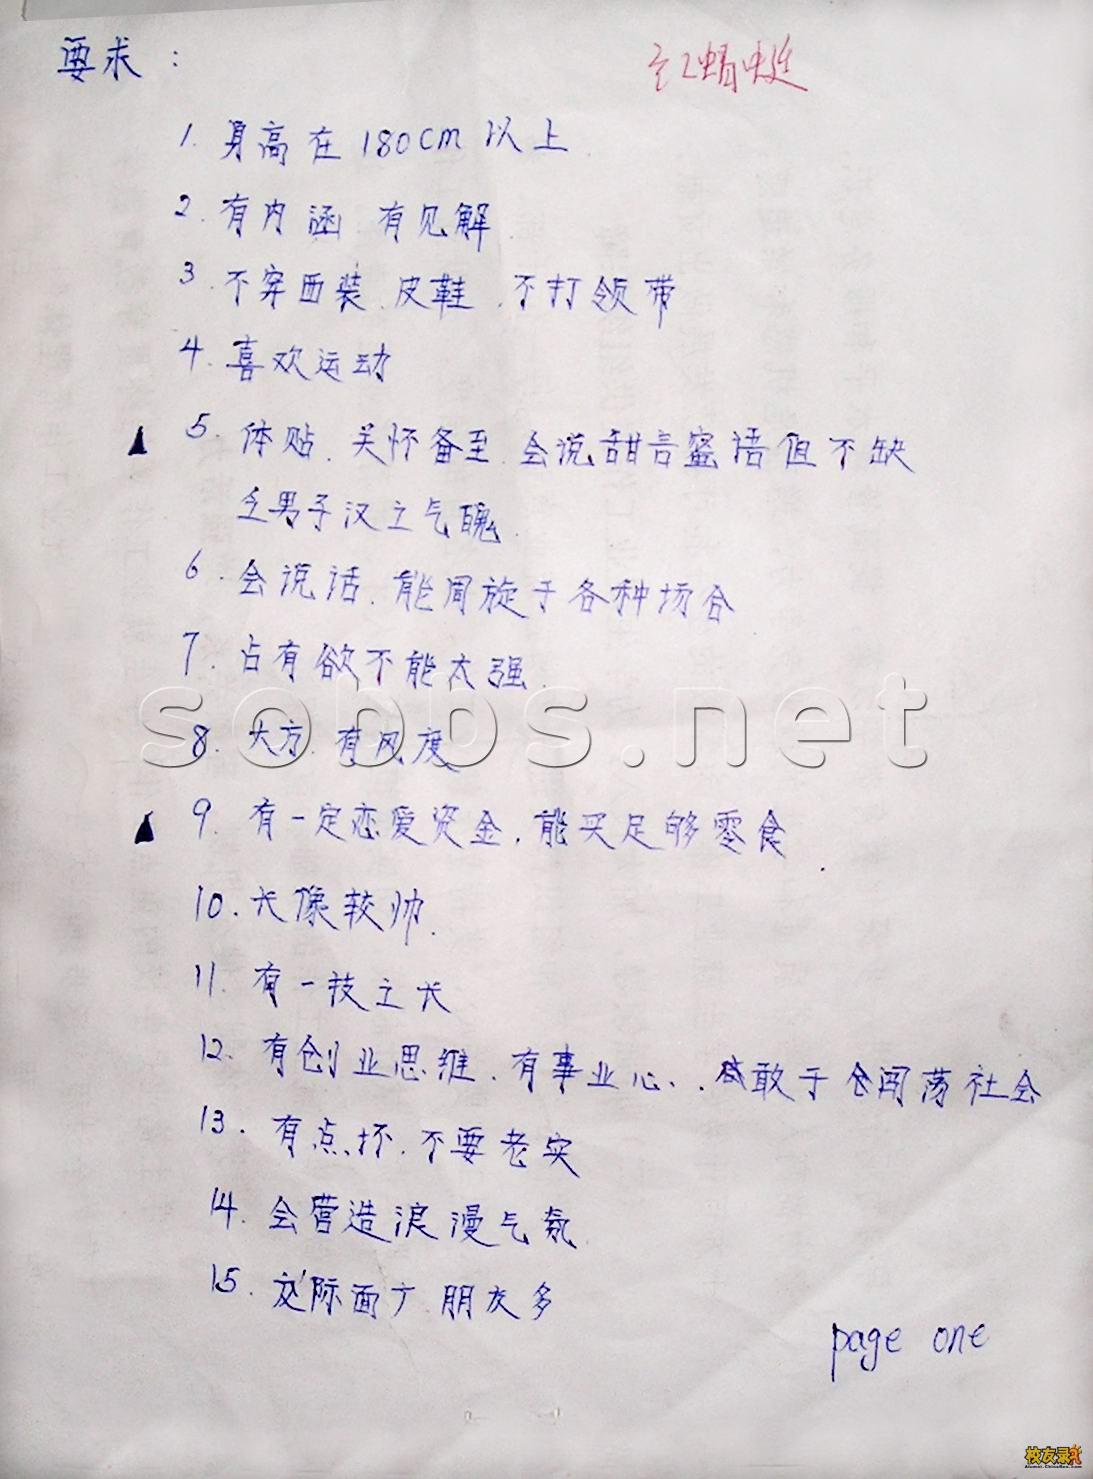 要求：
红蜻蜓
1. 身高在180cm以上.
2. 有内涵 有见解.
3. 不穿西装、皮鞋、不打领带
4. 喜欢运动
5. 体贴、关怀备至、会说甜言蜜语但不缺
乏男子汉之气魄.
6. 会说话、能周旋于各种场合
7. 占有欲不能太强.
8. 大方、有风度
9. 有一定恋爱资金，能买足够零食.
10. 长像较帅.
11. 有一技之长
12. 有创业思维、有事业心、敢于闯荡社会
13. 有点坏、不要老实
14. 会营造浪漫气氛
15. 交际面广 朋友多
page one
sobbs.net
校友录
Alumni.ChinaRen.com